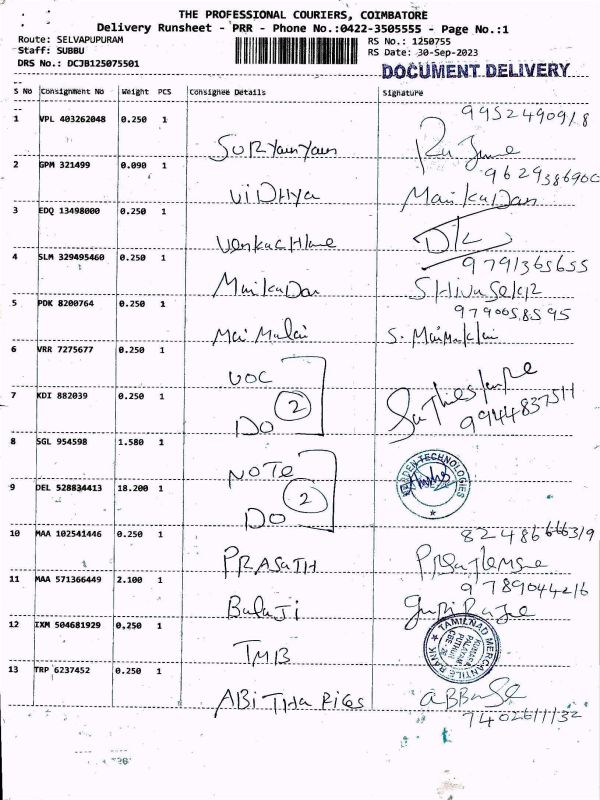 THE PROFESSIONAL COURIERS, COIMBATORE
Delivery Runsheet - PRR - Phone No.:0422-3505555 - Page No.:1
Route: SELVAPUPURAM
Staff: SUBBU
DRS No.: DCJB125075501
RS No.: 1250755
RS Date: 30-Sep-2023
DOCUMENT DELIVERY
S No Consignment No Weight PCS Consignee Details Signature
1 VPL 403262048 0.250 1 9952490918
2 GPM 321499 0.090 1 ViDHya 9629386900
3 EDQ 13498000 0.250 1
4 SLM 329495460 0.250 1 ManikaDan 9791365655
5 PDK 8200764 0.250 1 Mai Malai 9790058595
6 VRR 7275677 0.250 1 VOC
7 KDI 882039 0.250 1 DO 2 9944837511
8 SGL 954598 1.580 1 NOTE
9 DEL 528834413 18.200 1 DO 2
10 MAA 102541446 0.250 1 PRASATH
11 MAA 571366449 2.100 1 BalaJi 9789044216
12 IXM 504681929 0.250 1 TMB TAMILNAD MERCANTILE BANK
13 TRP 6237452 0.250 1 ABiTHa RICes